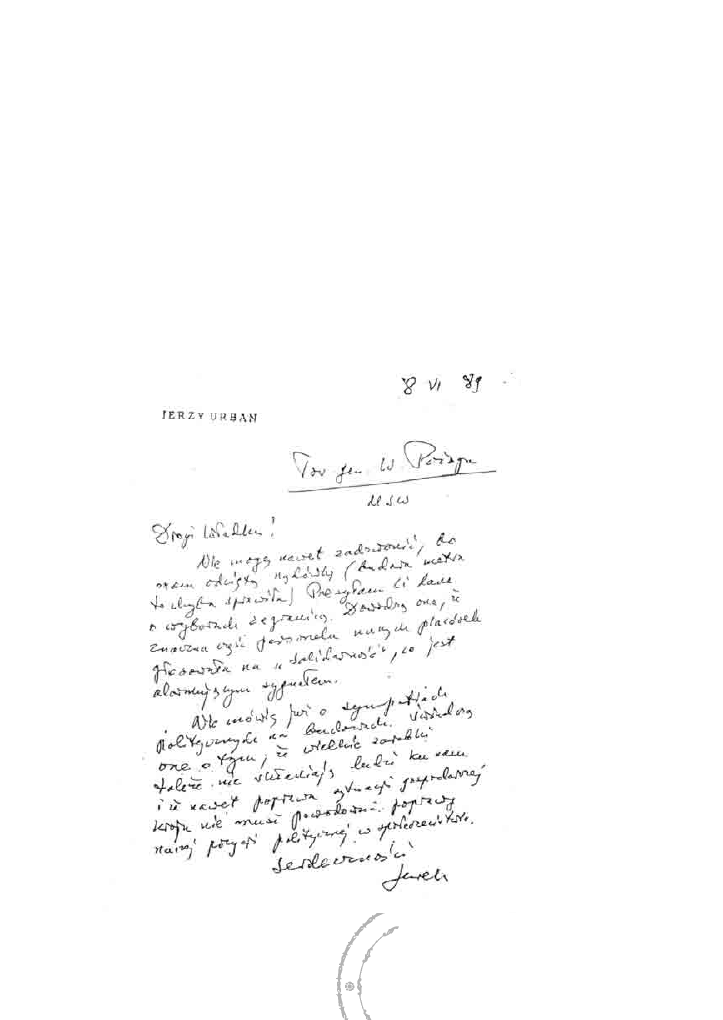 8 VI 89
JERZY URBAN
Tow gen. W. Pożoga
MSW
Drogi Władku!
Nie mogę nawet zadzwonić, bo
mam odciętą rządówkę (budowa metra
to chyba sprawiła) Przesyłam Ci dane
o wyborach zagranicą. Dowodzą one, że
znaczna część personelu naszych placówek
głosowała na "Solidarność", co jest
alarmującym sygnałem.
Nie mówię już o sympatiach
politycznych na budowach. Świadczą
one o tym, że wielkie zarobki
także nie skłaniają ludzi ku nam
i że nawet poprawa sytuacji gospodarczej
kraju nie musi powodować poprawy
naszej pozycji politycznej w społeczeństwie.
Serdeczności
Jurek